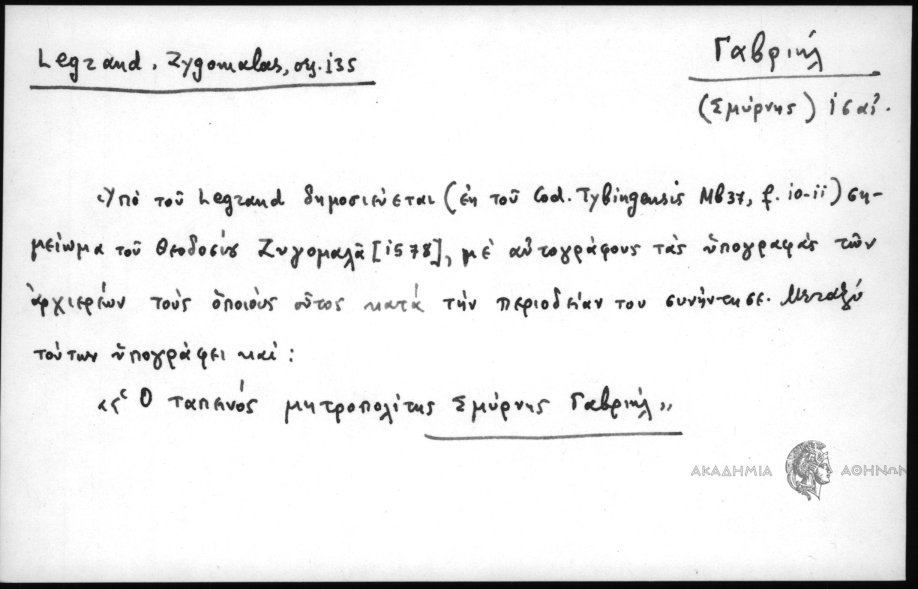 Legrand, Zygomalas, σς. 135
Γαβριήλ
(Σμύρνης) ις αἰ.
Ὑπὸ τοῦ Legrand δημοσιεύεται (ἐκ τοῦ Cod. Tybingensis Mb37, f. 10-11) ση-
μείωμα τοῦ Θεοδοσίου Ζυγομαλᾶ [1578], μὲ αὐτογράφους τὰς ὑπογραφὰς τῶν
ἀρχιερέων τοὺς ὁποίους οὗτος κατὰ τὴν περιοδείαν του συνήντησε. Μεταξὺ
τούτων ὑπογράφει καὶ:
Ὁ ταπεινὸς μητροπολίτης Σμύρνης Γαβριήλ»
ΑΚΑΔΗΜΙΑ ΑΘΗΝΩΝ